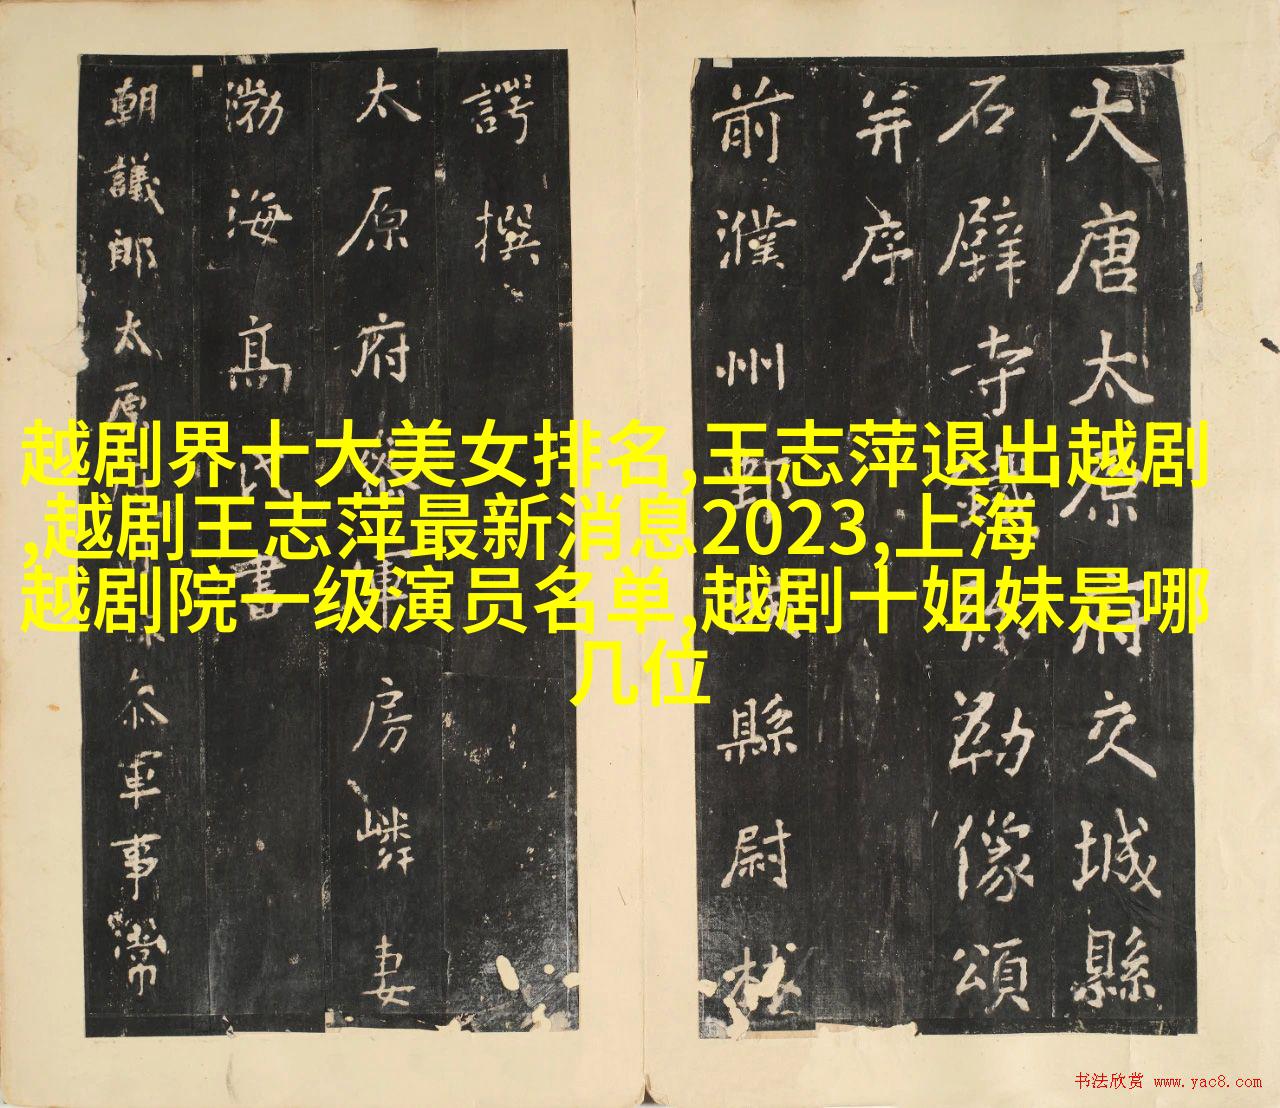 越剧界十大美女排名,王志萍退出越剧
,越剧王志萍最新消息2023,上海
越剧院一级演员名单,越剧十姐妹是哪
几位
大唐太原府交城縣
石壁寺鐵彌勒像頌
并序
前濮州鄄城縣尉林
諤撰
太原府軍房嶙妻
渤海高氏書
朝議郎太原參軍事常
书法欣赏 www.yac8.com